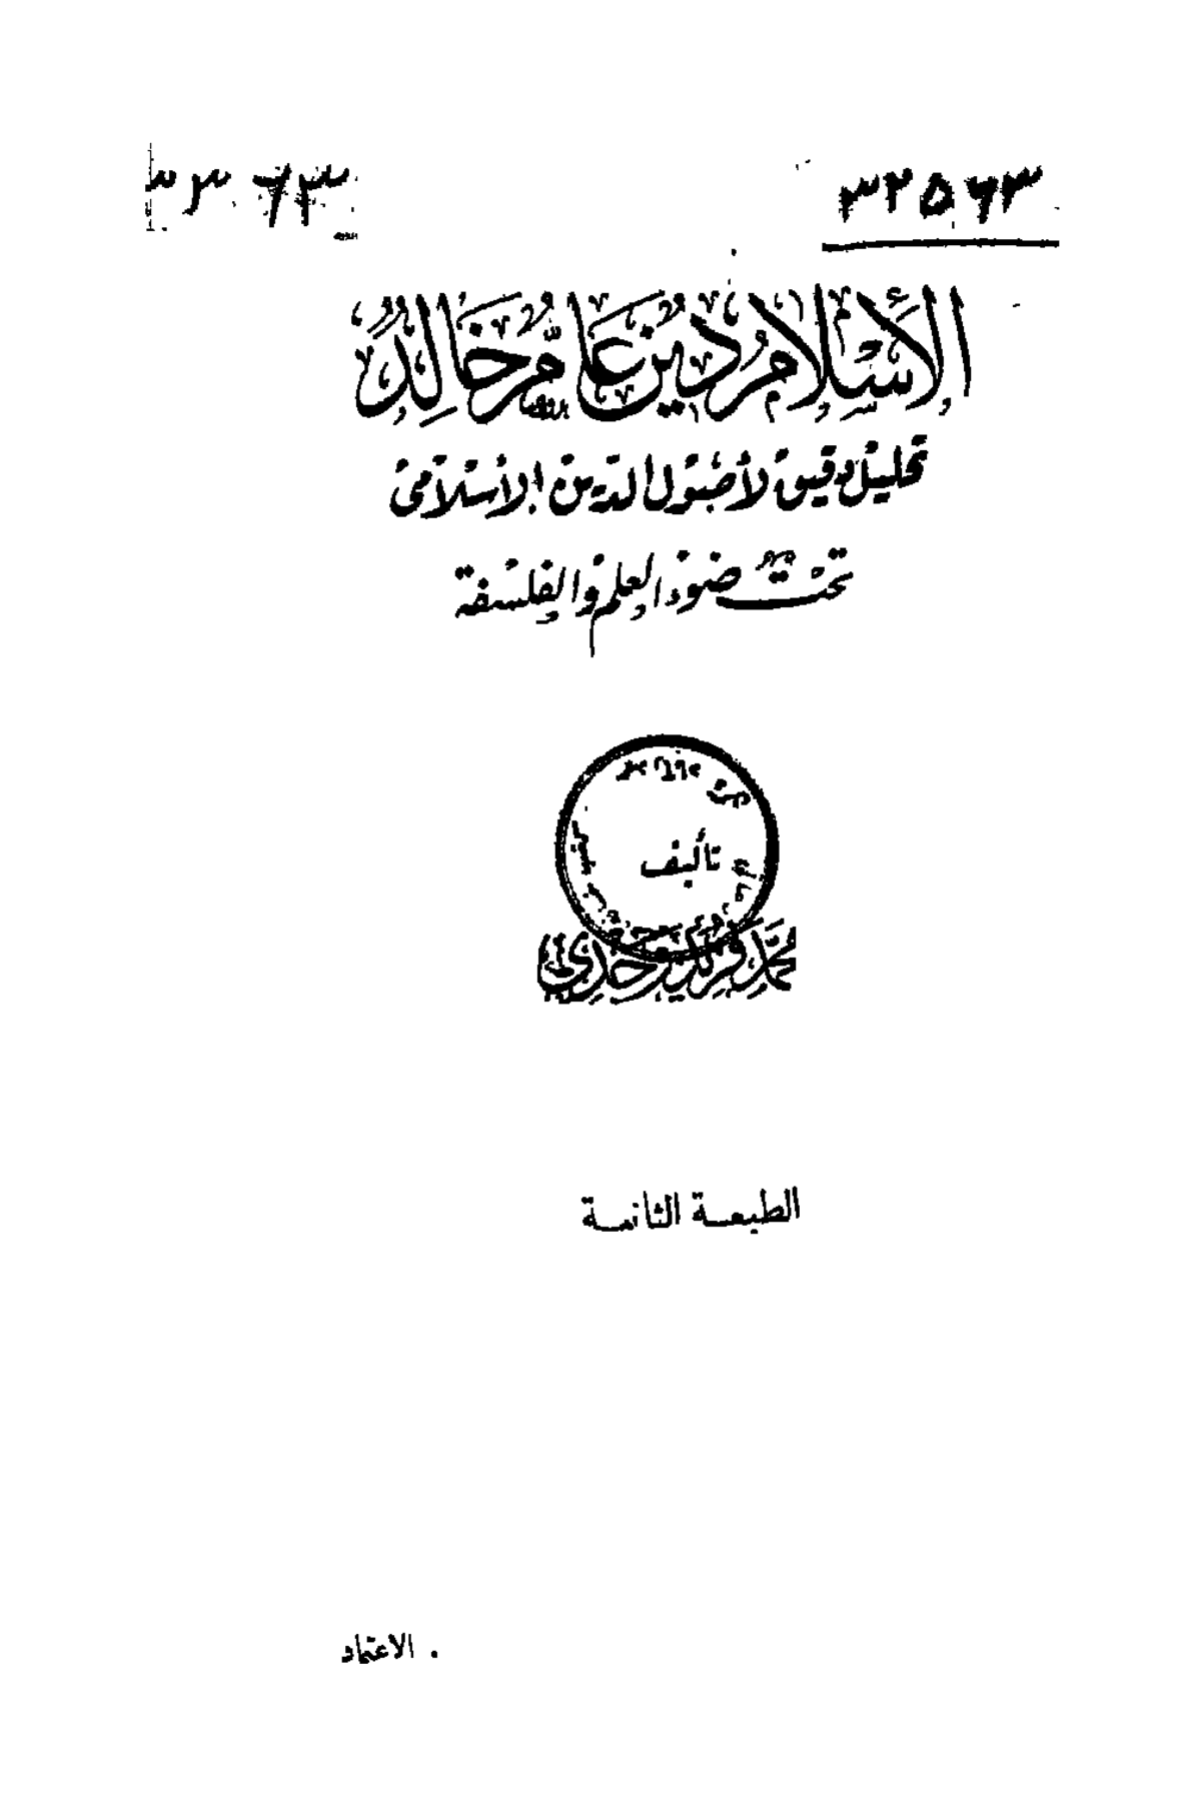 ٣٢٥٦٣
الإسلام دين عام خالد
تحليل دقيق لأصول الدين الإسلامى
تحت ضوء العلم والفلسفة
تأليف
محمد فريد وجدي
الطبعة الثانية
الاعتماد